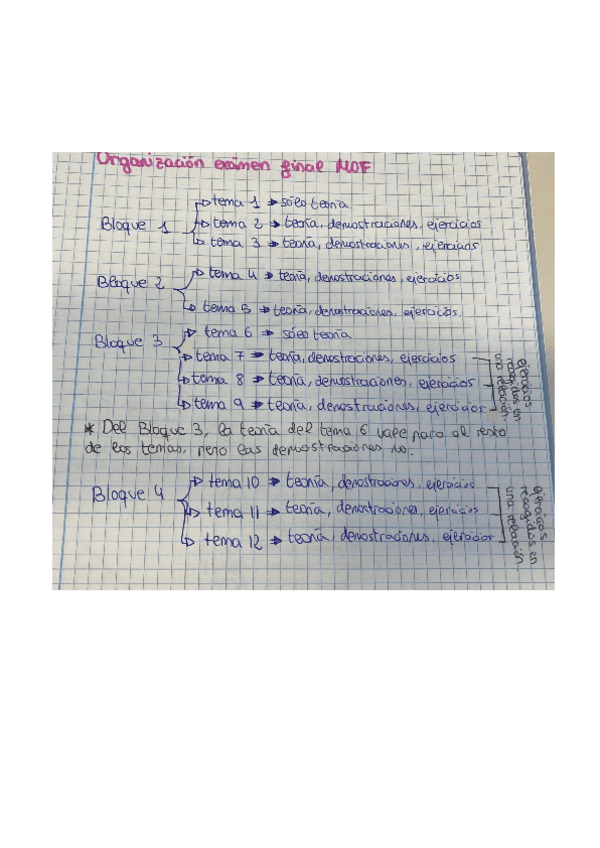 Organización examen final MOF
Bloque 1
tema 1 → sólo teoría
tema 2 → teoría, demostraciones, ejercicios
tema 3 → teoría, demostraciones, ejercicios
Bloque 2
tema 4 → teoría, demostraciones, ejercicios
tema 5 → teoría, demostraciones, ejercicios
Bloque 3
tema 6 → sólo teoría
tema 7 → teoría, demostraciones, ejercicios
tema 8 → teoría, demostraciones, ejercicios
tema 9 → teoría, demostraciones, ejercicios
ejercicios
recogidos en
una relación.
* Del Bloque 3, la teoría del tema 6 vale para el resto
de los temas, pero las demostraciones no.
Bloque 4
tema 10 → teoría, demostraciones, ejercicios
tema 11 → teoría, demostraciones, ejercicios
tema 12 → teoría, demostraciones, ejercicios
ejercicios
recogidos en
una relación.